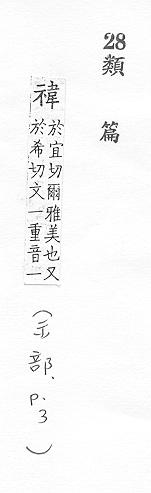 28類篇
禕
於宜切爾雅美也又
於希切文一重音一
(示部, p.3)